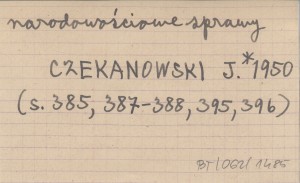 narodowościowe sprawy
CZEKANOWSKI J.* 1950
(s. 385, 387-388, 395, 396)
BT/062/1485